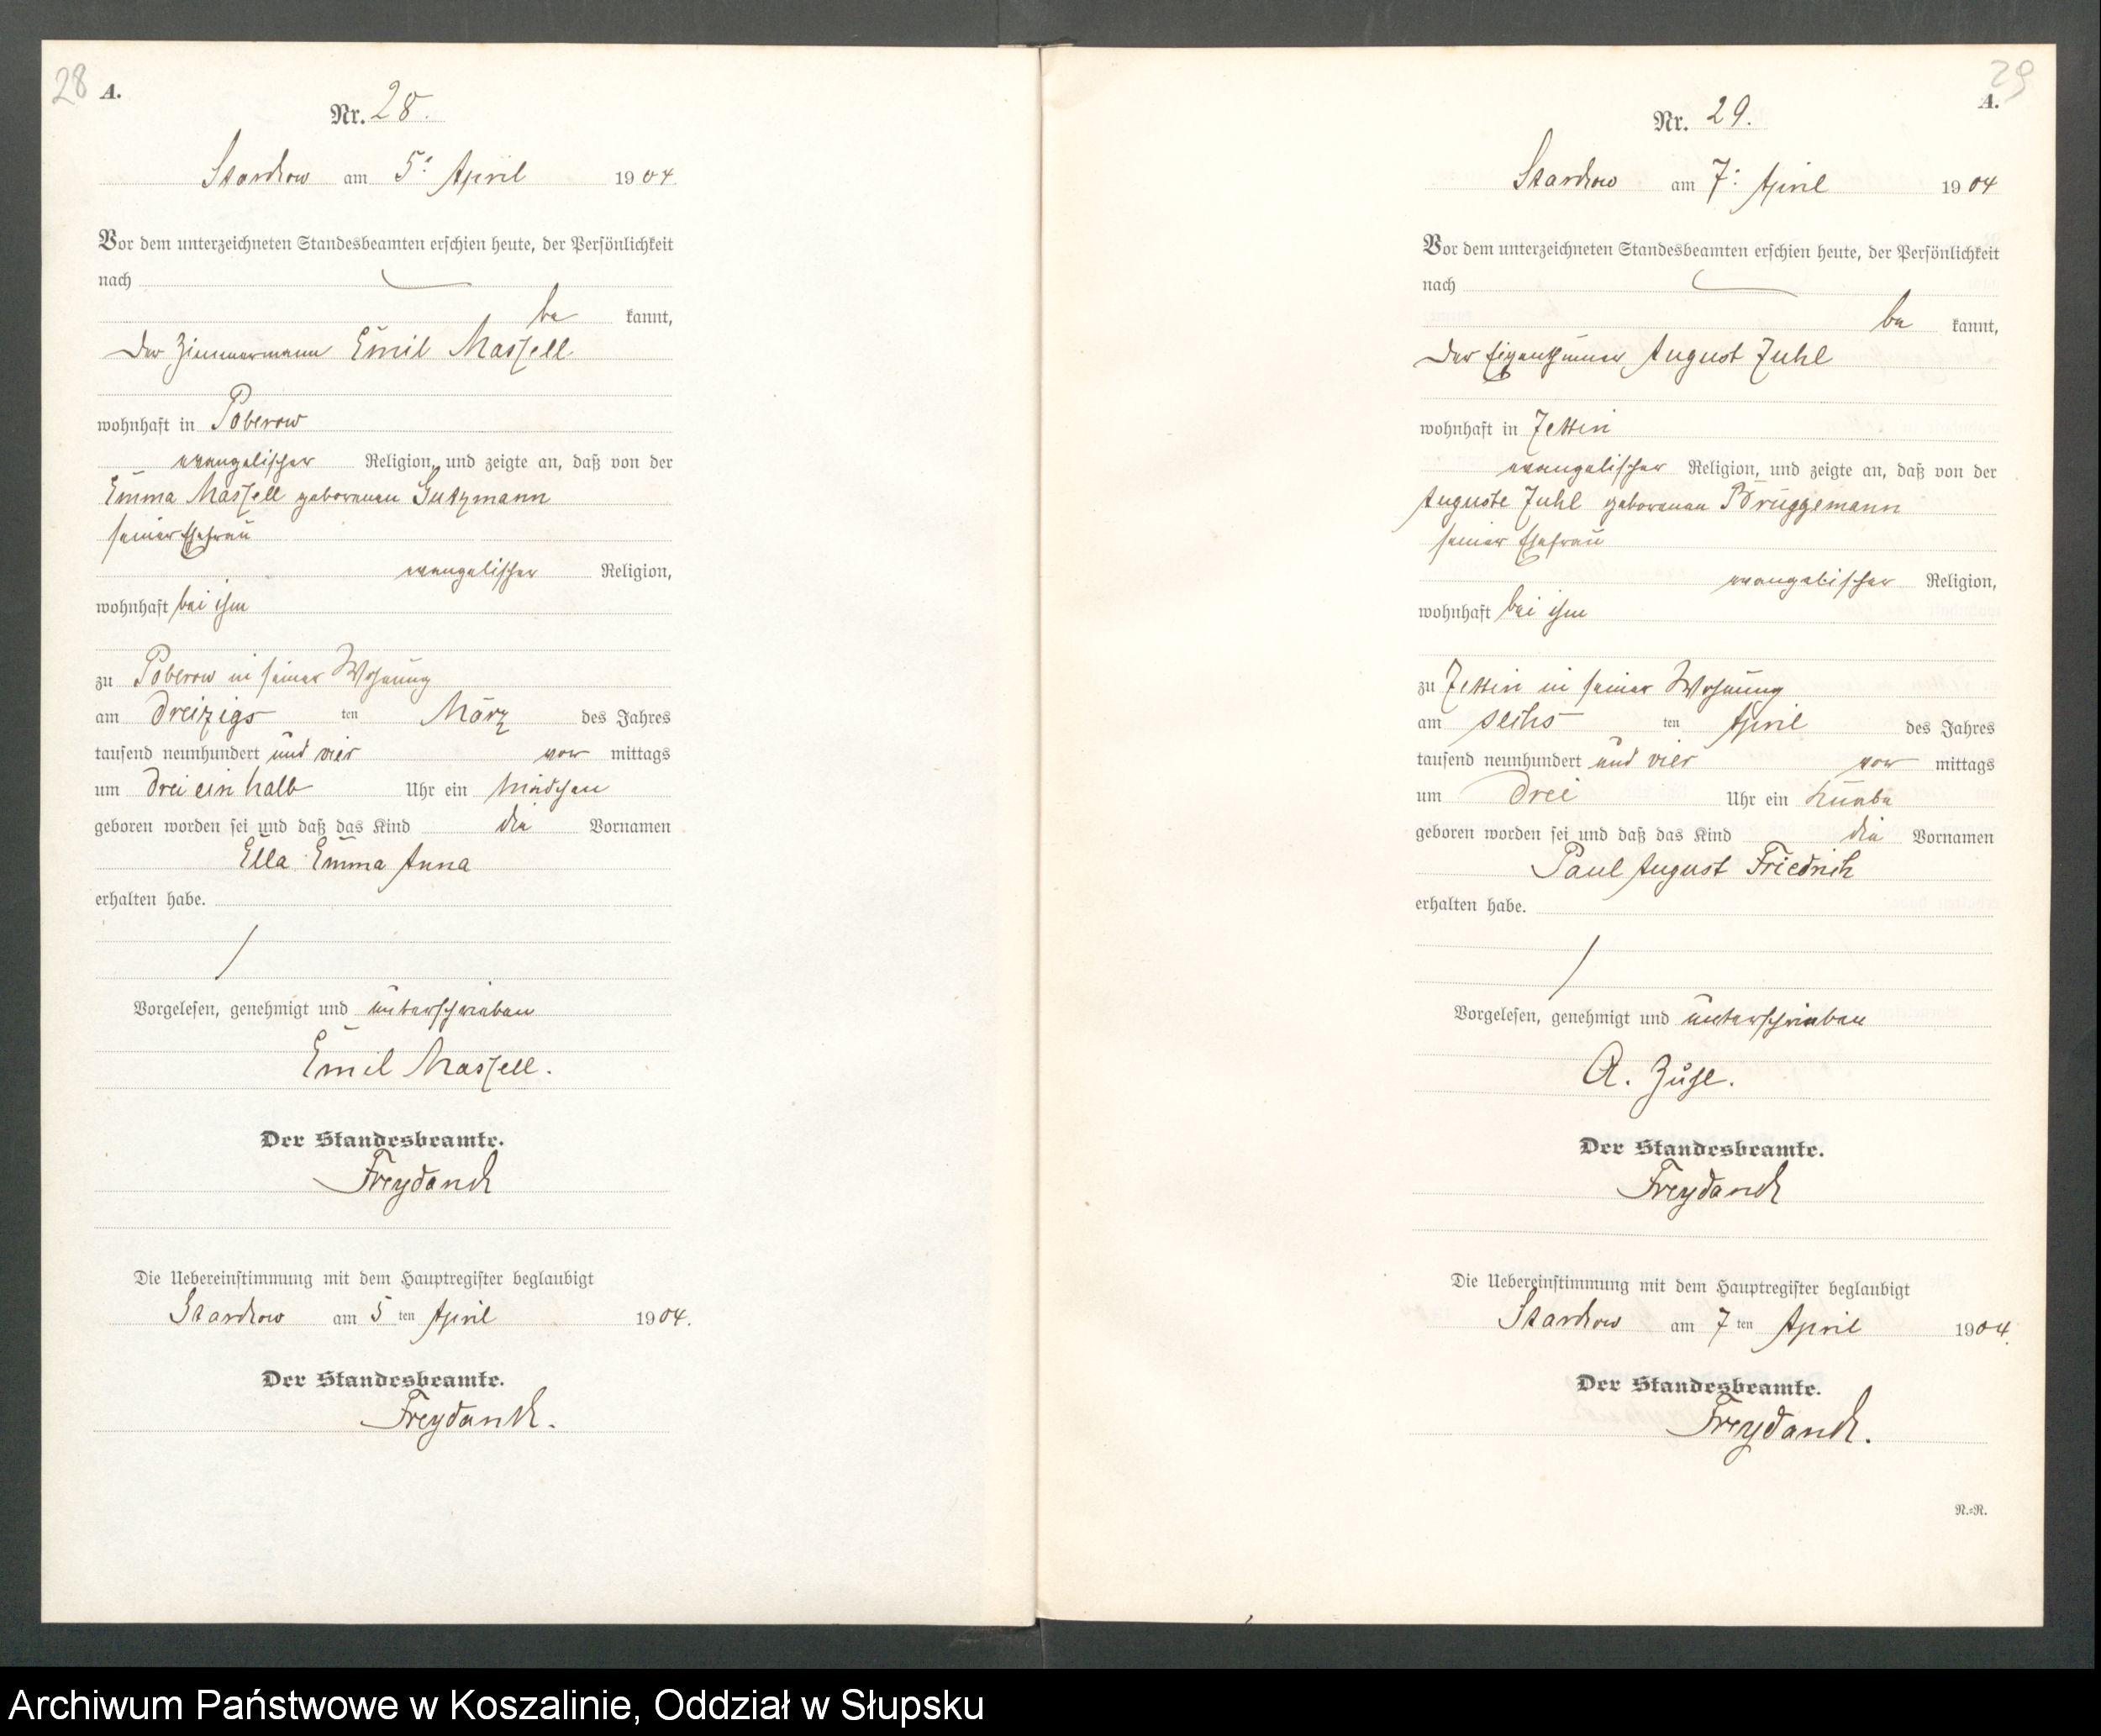 28 A.
Nr. 28.
Starckow am 5t April 1904.
Vor dem unterzeichneten Standesbeamten erschien heute, der Persönlichkeit
nach
be kannt,
Der Zimmermann Emil Massell
wohnhaft in Poberow
evangelischer Religion, und zeigte an, daß von der
Emma Massell geborenen Gutzmann
seiner Ehefrau
evangelischer Religion,
wohnhaft bei ihm
zu Poberow in seiner Wohnung
am dreizigs ten März des Jahres
tausend neunhundert und vier vor mittags
um drei ein halb Uhr ein Mädchen
geboren worden sei und daß das Kind die Vornamen
Ella Emma Anna
erhalten habe.
Vorgelesen, genehmigt und unterschrieben
Emil Massell.
Der Standesbeamte.
Freydanck
Die Uebereinstimmung mit dem Hauptregister beglaubigt
Starckow am 5 ten April 1904.
Der Standesbeamte.
Freydanck.
29
A.
Nr. 29.
Starckow am 7t April 1904
Vor dem unterzeichneten Standesbeamten erschien heute, der Persönlichkeit
nach
be kannt,
Der Eigenthümer August Zuhl
wohnhaft in Zettin
evangelischer Religion, und zeigte an, daß von der
Auguste Zuhl geborenen Brüggemann
seiner Ehefrau
evangelischer Religion,
wohnhaft bei ihm
zu Zettin in seiner Wohnung
am sechs ten April des Jahres
tausend neunhundert und vier vor mittags
um drei Uhr ein Knabe
geboren worden sei und daß das Kind die Vornamen
Paul August Friedrich
erhalten habe.
Vorgelesen, genehmigt und unterschrieben
A. Zuhl.
Der Standesbeamte.
Freydanck
Die Uebereinstimmung mit dem Hauptregister beglaubigt
Starckow am 7 ten April 1904.
Der Standesbeamte.
Freydanck.
R.=R.
Archiwum Państwowe w Koszalinie, Oddział w Słupsku